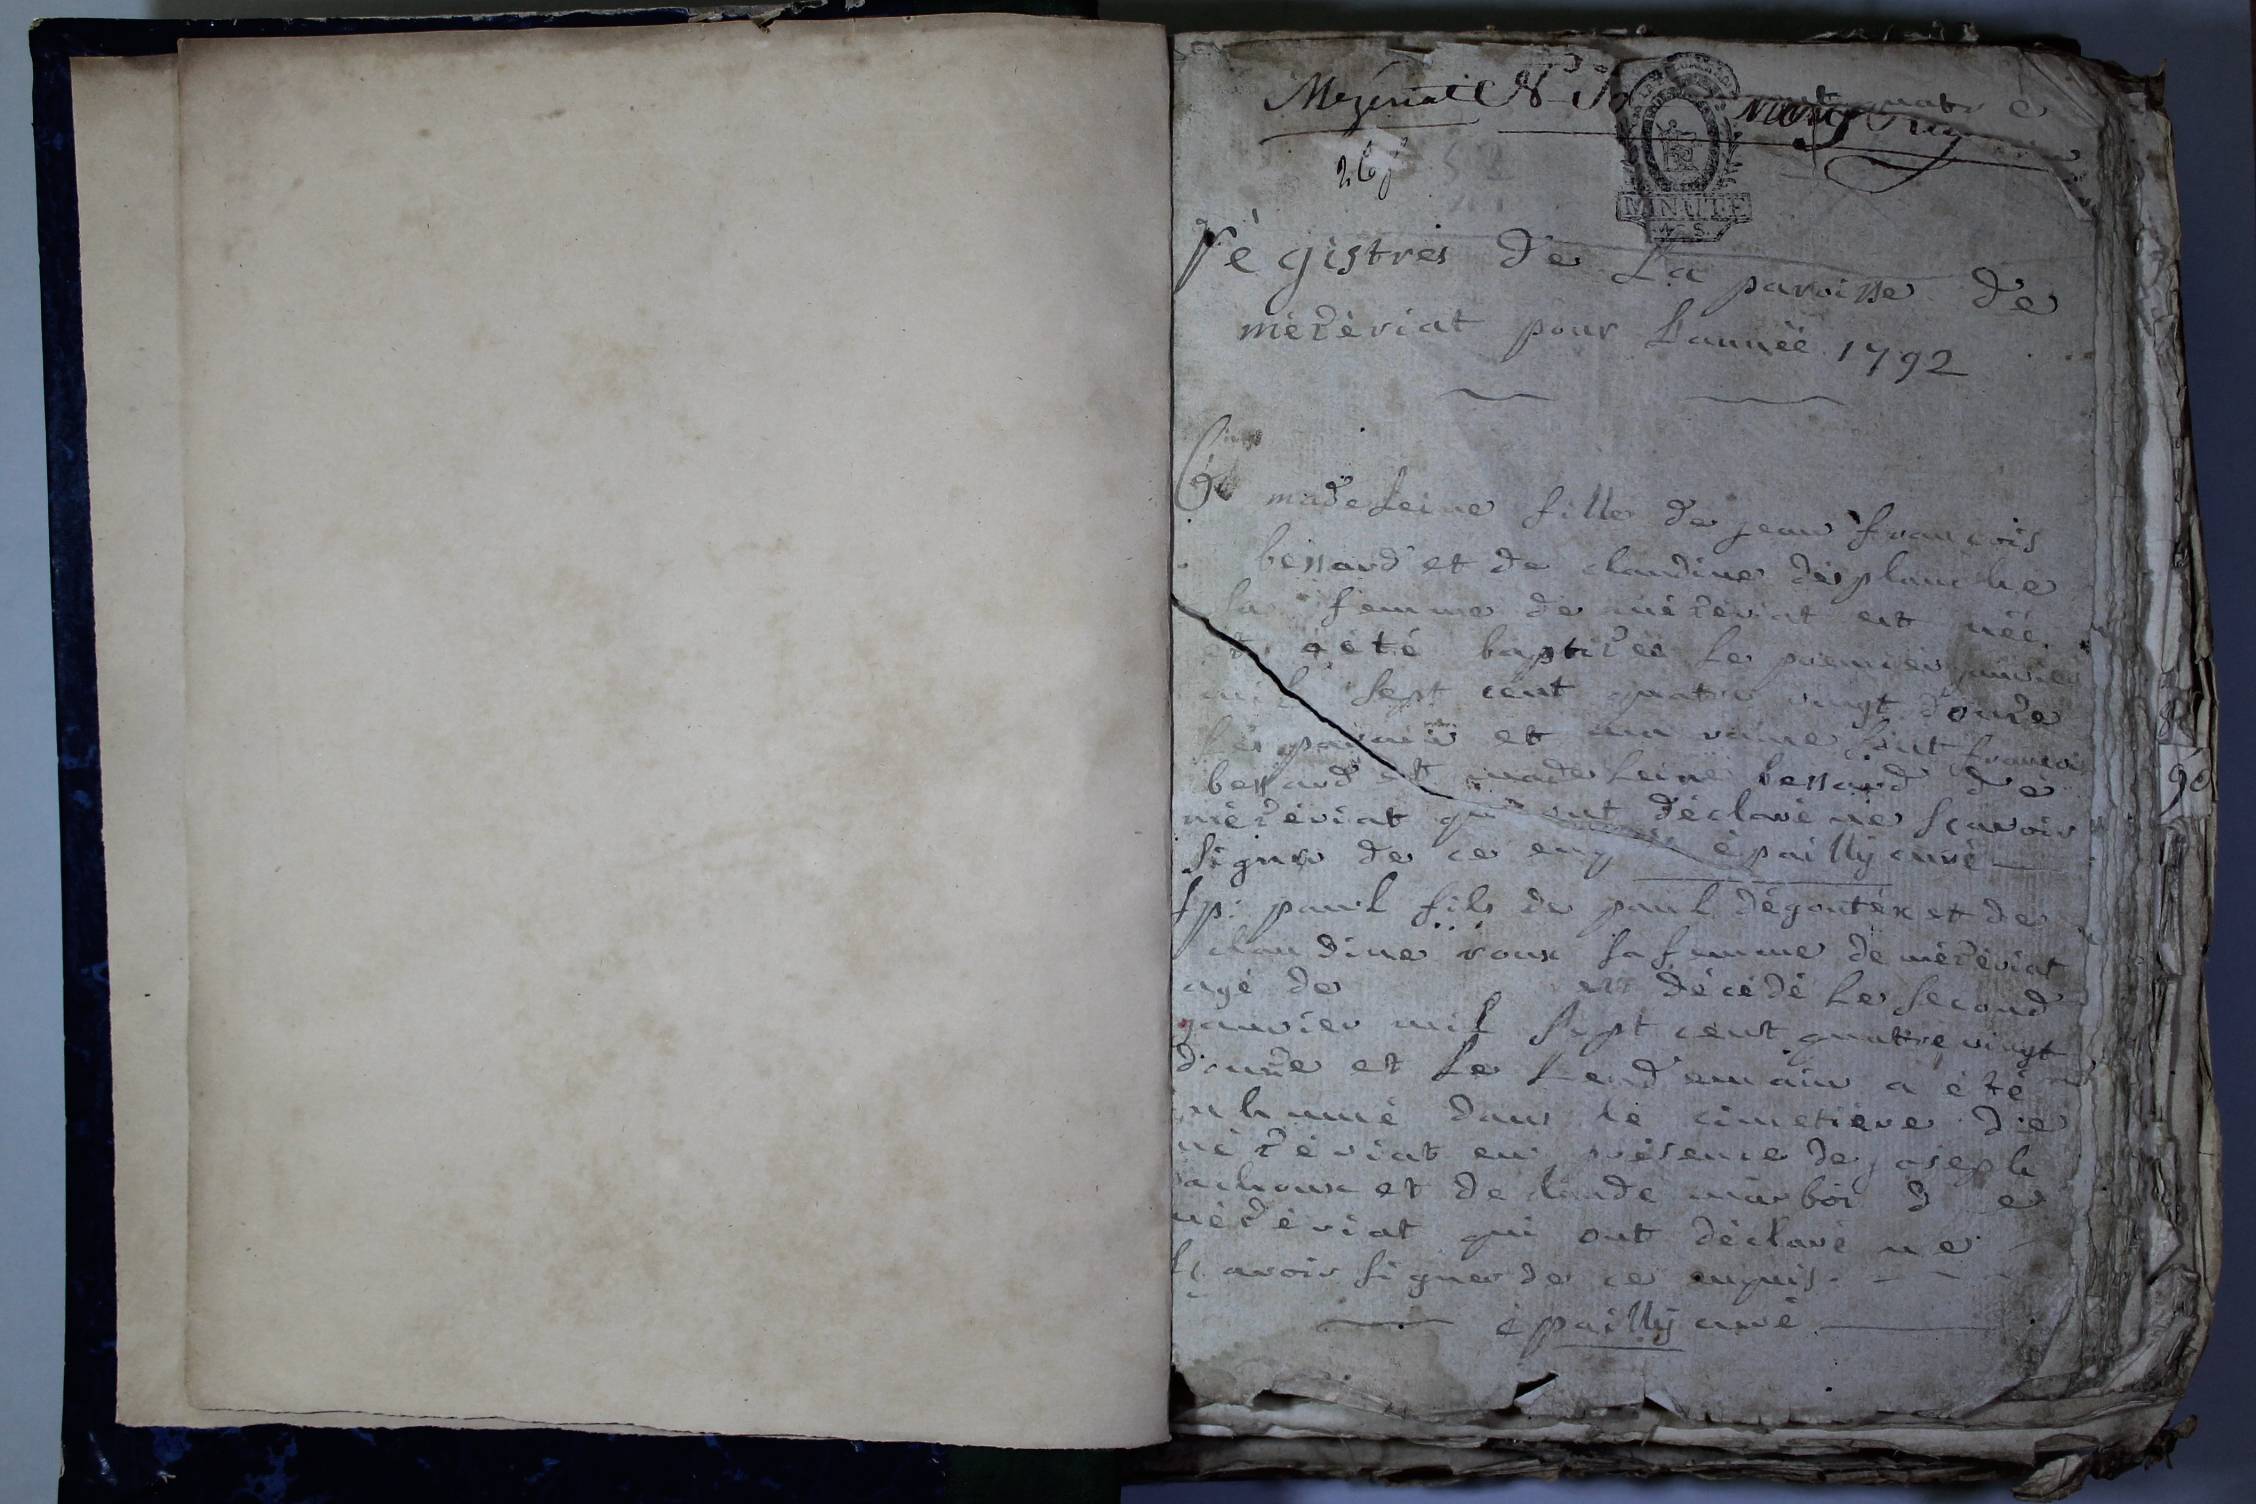 Mezériat N
MINUTE
régistres de La paroisse de
mézériat pour L'année 1792
madeleine fille de jean françois
bessard et de claudine désplanche
sa femme de mézériat est née
et a été baptizée le premier janvier
mil sept cent quatre vingt douze
les parain et maraine sont françois
bessard et madeleine bessard de
mézériat qui ont déclaré ne sçavoir
signer de ce enq épailly curé
sp: paul fils de paul dégoutex et de
claudine roux sa femme de mézériat
agé de est décédé le second
janvier mil sept cent quattre vingt
douze et le lendemain a été
inhumé dans le cimetiere de
mézériat en présence de joseph
et de claude marboi de
mézériat qui ont déclaré ne
sçavoir signer de ce enquis.
épailly curé